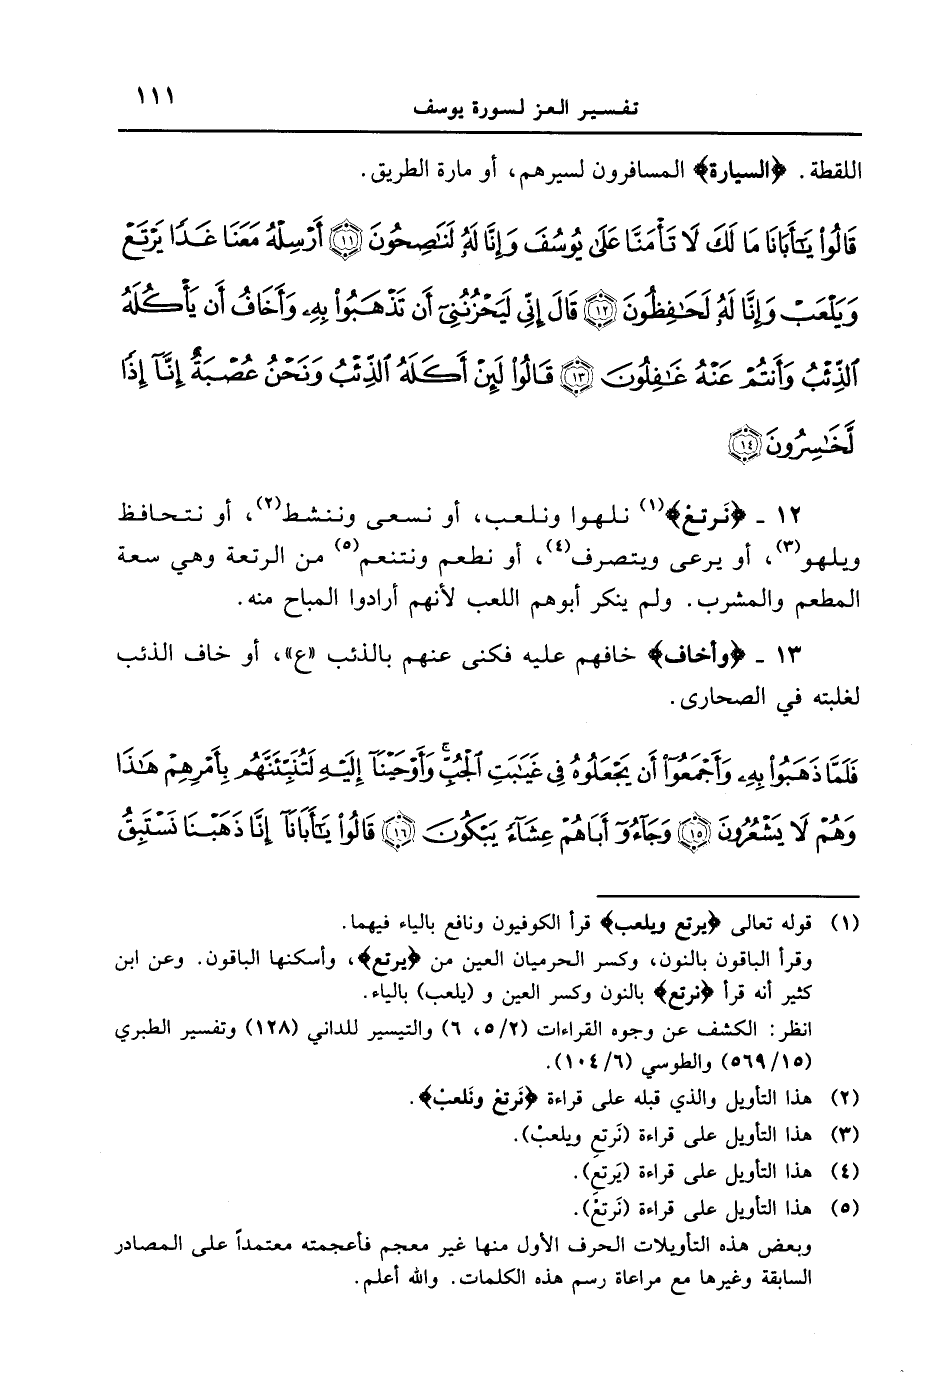 تفسير العز لسورة يوسف ١١١
اللقطة. ﴿السيارة﴾ المسافرون لسيرهم، أو مارة الطريق.
قَالُوا۟ يَـٰٓأَبَانَا مَا لَكَ لَا تَأْمَ۬نَّا عَلَىٰ يُوسُفَ وَإِنَّا لَهُۥ لَنَـٰصِحُونَ ١١ أَرْسِلْهُ مَعَنَا غَدًا يَرْتَعْ
وَيَلْعَبْ وَإِنَّا لَهُۥ لَحَـٰفِظُونَ ١٢ قَالَ إِنِّى لَيَحْزُنُنِىٓ أَن تَذْهَبُوا۟ بِهِۦ وَأَخَافُ أَن يَأْكُلَهُ
ٱلذِّئْبُ وَأَنتُمْ عَنْهُ غَـٰفِلُونَ ١٣ قَالُوا۟ لَئِنْ أَكَلَهُ ٱلذِّئْبُ وَنَحْنُ عُصْبَةٌ إِنَّآ إِذًا
لَّخَـٰسِرُونَ ١٤
١٢ ـ ﴿نَرتعْ﴾(١) نلهوا ونلعب، أو نسعى وننشط(٢)، أو نتحافظ
ويلهو(٣)، أو يرعى ويتصرف(٤)، أو نطعم ونتنعم(٥) من الرتعة وهي سعة
المطعم والمشرب. ولم ينكر أبوهم اللعب لأنهم أرادوا المباح منه.
١٣ ـ ﴿وأخاف﴾ خافهم عليه فكنى عنهم بالذئب «ع»، أو خاف الذئب
لغلبته في الصحارى.
فَلَمَّا ذَهَبُوا۟ بِهِۦ وَأَجْمَعُوٓا۟ أَن يَجْعَلُوهُ فِى غَيَـٰبَتِ ٱلْجُبِّ ۚ وَأَوْحَيْنَآ إِلَيْهِ لَتُنَبِّئَنَّهُم بِأَمْرِهِمْ هَـٰذَا
وَهُمْ لَا يَشْعُرُونَ ١٥ وَجَآءُوٓ أَبَاهُمْ عِشَآءً يَبْكُونَ ١٦ قَالُوا۟ يَـٰٓأَبَانَآ إِنَّا ذَهَبْنَا نَسْتَبِقُ
(١) قوله تعالى ﴿يرتع ويلعب﴾ قرأ الكوفيون ونافع بالياء فيهما.
وقرأ الباقون بالنون، وكسر الحرميان العين من ﴿يرتع﴾، وأسكنها الباقون. وعن ابن
كثير أنه قرأ ﴿نرتع﴾ بالنون وكسر العين و (يلعب) بالياء.
انظر: الكشف عن وجوه القراءات (٥/٢، ٦) والتيسير للداني (١٢٨) وتفسير الطبري
(٥٦٩/١٥) والطوسي (١٠٤/٦).
(٢) هذا التأويل والذي قبله على قراءة ﴿نَرتعْ ونَلعبْ﴾.
(٣) هذا التأويل على قراءة (نَرتعِ ويلعبْ).
(٤) هذا التأويل على قراءة (يَرتعِ).
(٥) هذا التأويل على قراءة (نَرتعْ).
وبعض هذه التأويلات الحرف الأول منها غير معجم فأعجمته معتمداً على المصادر
السابقة وغيرها مع مراعاة رسم هذه الكلمات. والله أعلم.